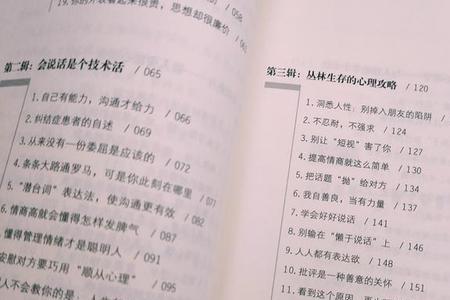 19. 你的外表看起来很贵，思想却很廉价 / 058
第二辑：会说话是个技术活 / 065
1. 自己有能力，沟通才给力 / 066
2. 纠结症患者的自述 / 069
3. 从来没有一份委屈是应该的 / 072
4. 条条大路通罗马，可是你此刻在哪里 / 07
5. “潜台词”表达法，使沟通更有效 / 082
6. 情商高就会懂得怎样发脾气 / 087
懂得管理情绪才是聪明人 / 091
安慰对方要巧用“顺从心理” / 095
人不会教你的是：
第三辑：丛林生存的心理攻略 / 120
1. 洞悉人性：别掉入朋友的陷阱 /
2. 不忍耐，不强求 / 124
3. 别让“短视”害了你 / 127
4. 提高情商就这么简单 / 130
5. 把话题“抛”给对方 / 134
6. 我自善良，当有力量 / 137
7. 学会好好说话 / 141
8. 别输在“懒于说话”上 / 146
9. 人人都有表达欲 / 148
10. 批评是一种善意的关怀 / 151
11. 看到这个原因，再